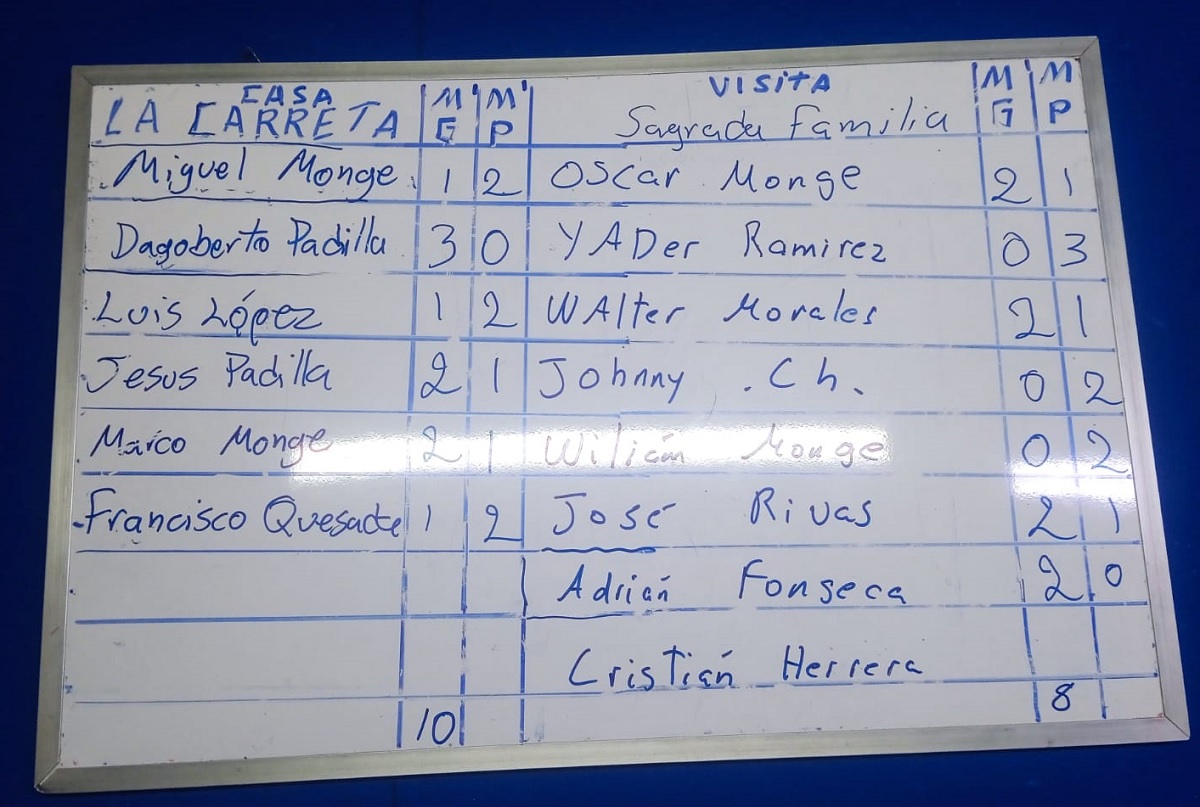 CASA M M VISITA M M
LA CARRETA G P Sagrada Familia G P
Miguel Monge 1 2 OSCar Monge 2 1
Dagoberto Padilla 3 0 YADer Ramirez 0 3
Luis López 1 2 WAlter Morales 2 1
Jesus Padilla 2 1 Johnny .Ch. 0 2
Marco Monge 2 1 Wilián Monge 0 2
Francisco Quesada 1 2 José Rivas 2 1
Adrián Fonseca 2 0
Cristián Herrera
10 8